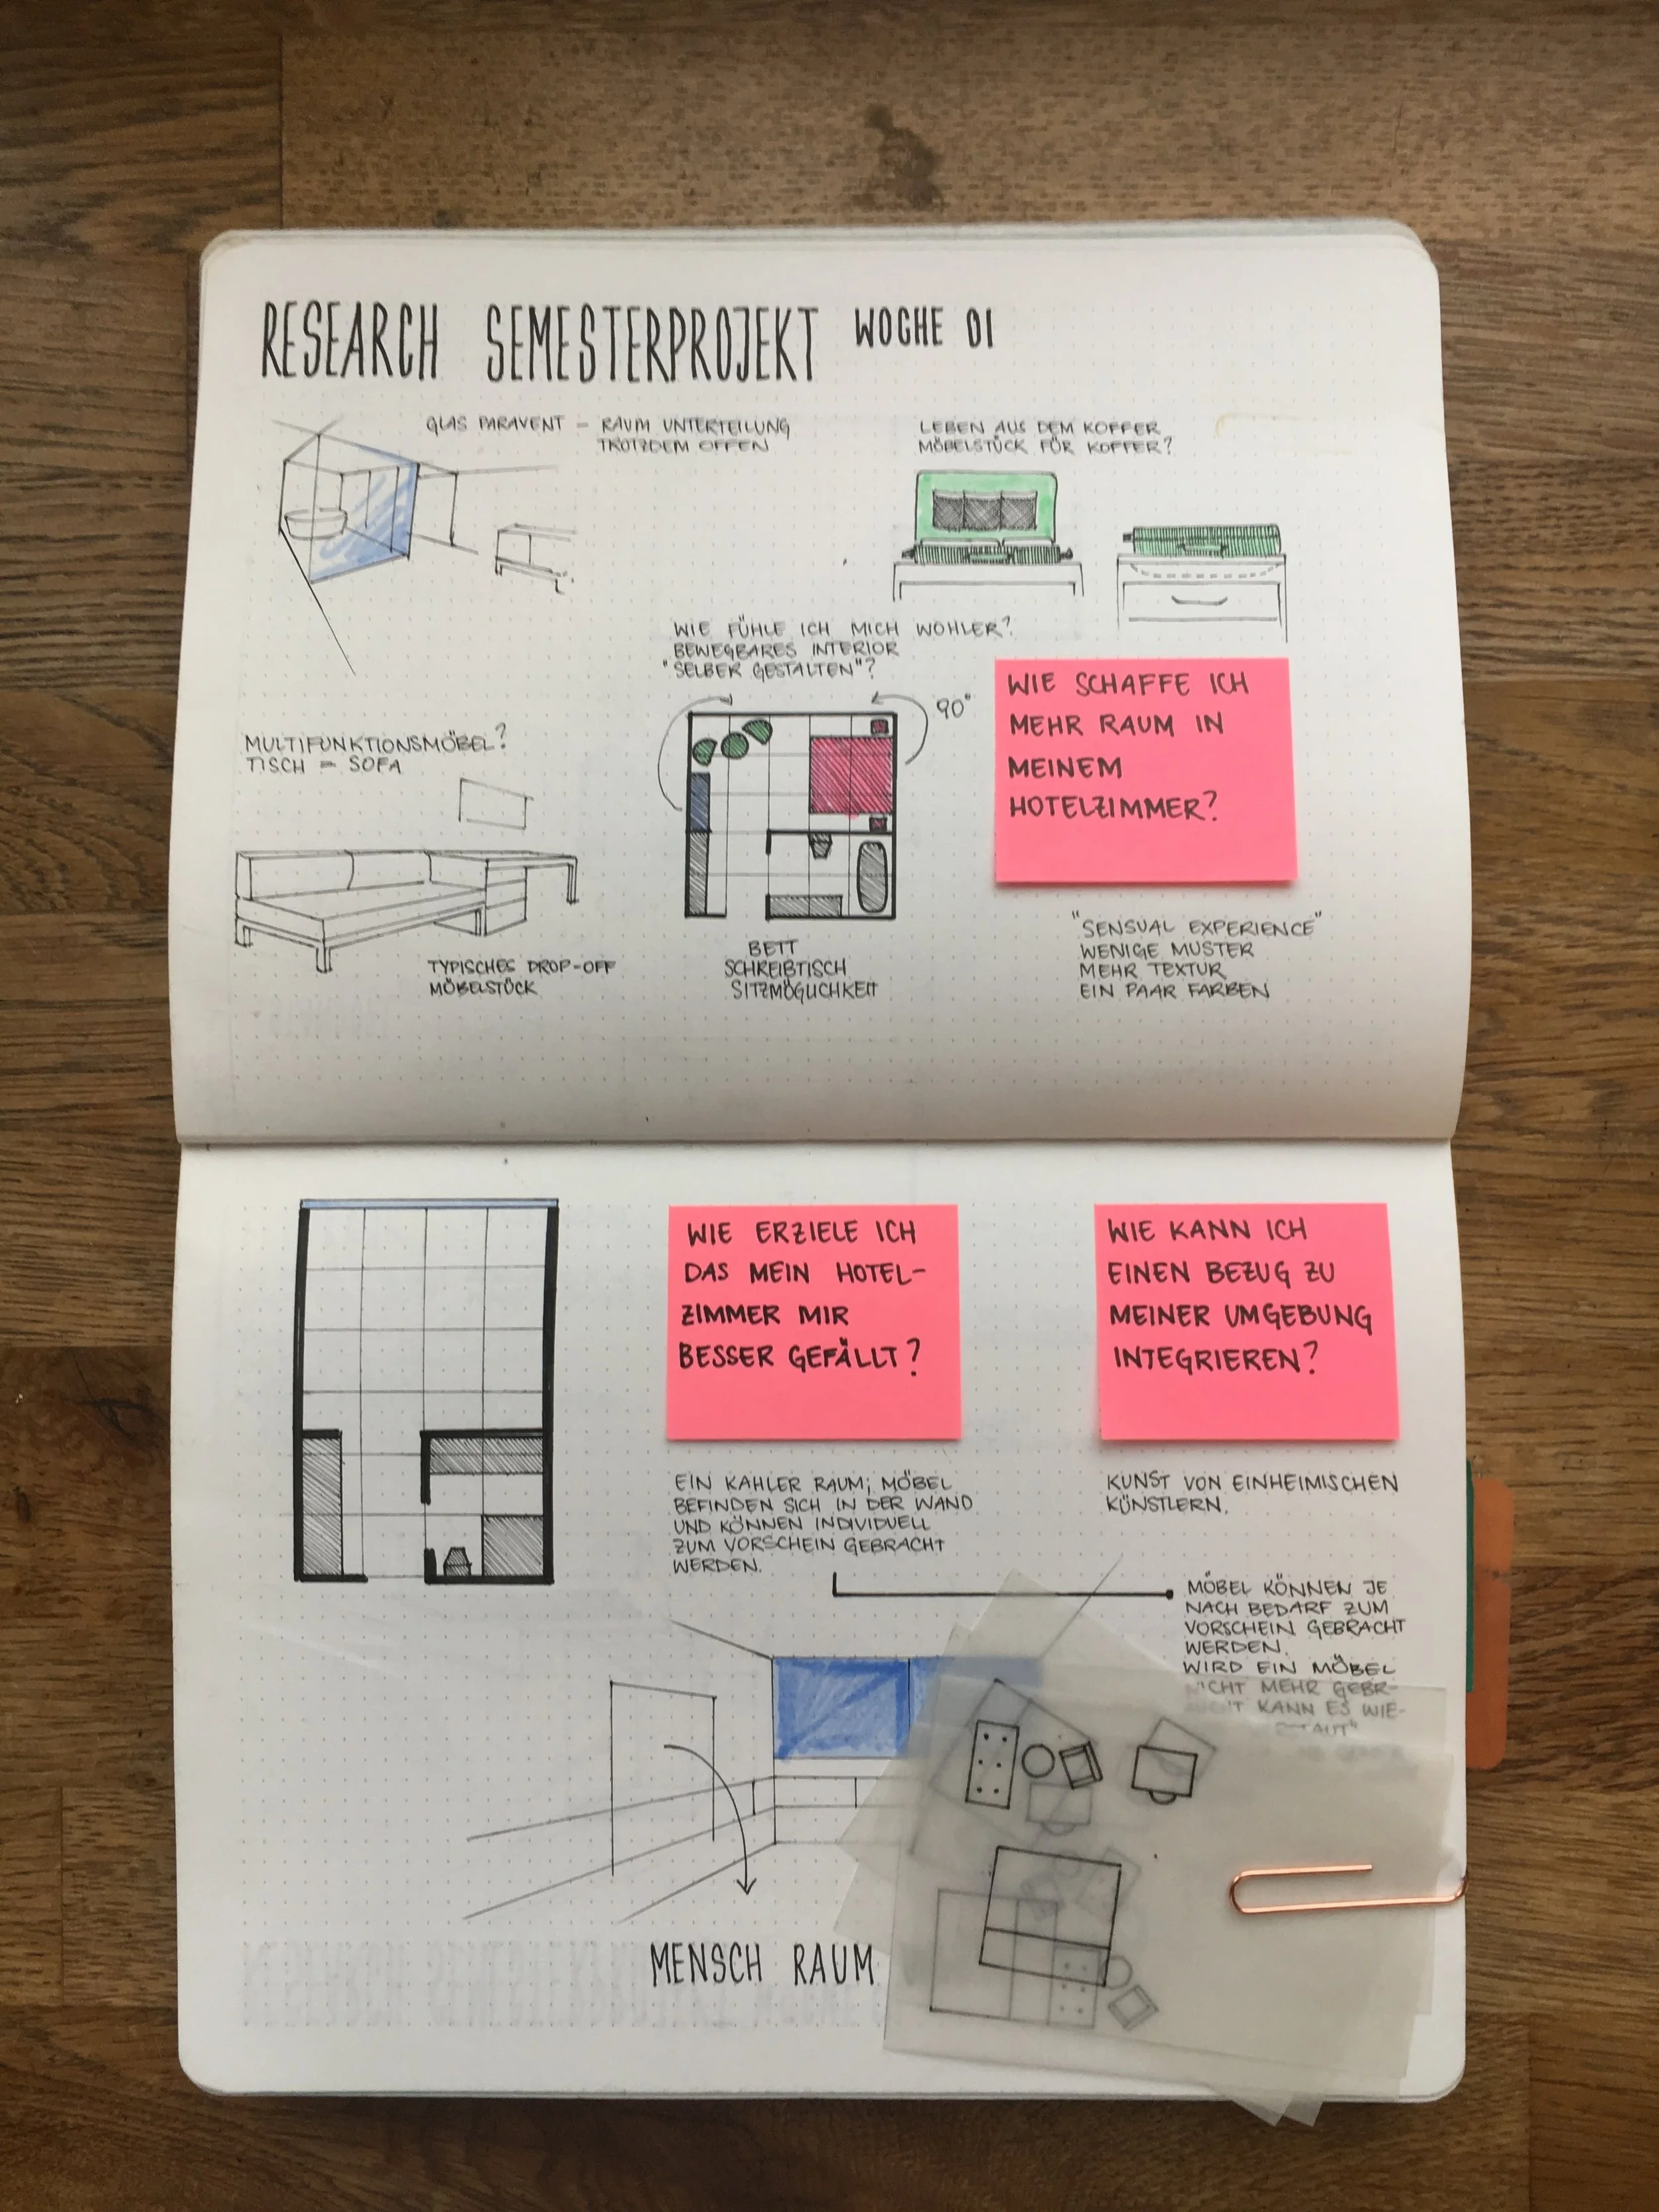 RESEARCH SEMESTERPROJEKT WOCHE 01
GLAS PARAVENT = RAUM UNTERTEILUNG
TROTZDEM OFFEN
LEBEN AUS DEM KOFFER
MÖBELSTÜCK FÜR KOFFER?
WIE FÜHLE ICH MICH WOHLER?
BEWEGBARES INTERIOR
"SELBER GESTALTEN"?
90°
WIE SCHAFFE ICH
MEHR RAUM IN
MEINEM
HOTELZIMMER?
MULTIFUNKTIONSMÖBEL?
TISCH = SOFA
TYPISCHES DROP-OFF
MÖBELSTÜCK
BETT
SCHREIBTISCH
SITZMÖGLICHKEIT
"SENSUAL EXPERIENCE"
WENIGE MUSTER
MEHR TEXTUR
EIN PAAR FARBEN
WIE ERZIELE ICH
DAS MEIN HOTEL-
ZIMMER MIR
BESSER GEFÄLLT?
WIE KANN ICH
EINEN BEZUG ZU
MEINER UMGEBUNG
INTEGRIEREN?
EIN KAHLER RAUM; MÖBEL
BEFINDEN SICH IN DER WAND
UND KÖNNEN INDIVIDUELL
ZUM VORSCHEIN GEBRACHT
WERDEN.
KUNST VON EINHEIMISCHEN
KÜNSTLERN.
MÖBEL KÖNNEN JE
NACH BEDARF ZUM
VORSCHEIN GEBRACHT
WERDEN.
WIRD EIN MÖBEL
NICHT MEHR GEBR-
KANN ES WIE-
MENSCH RAUM